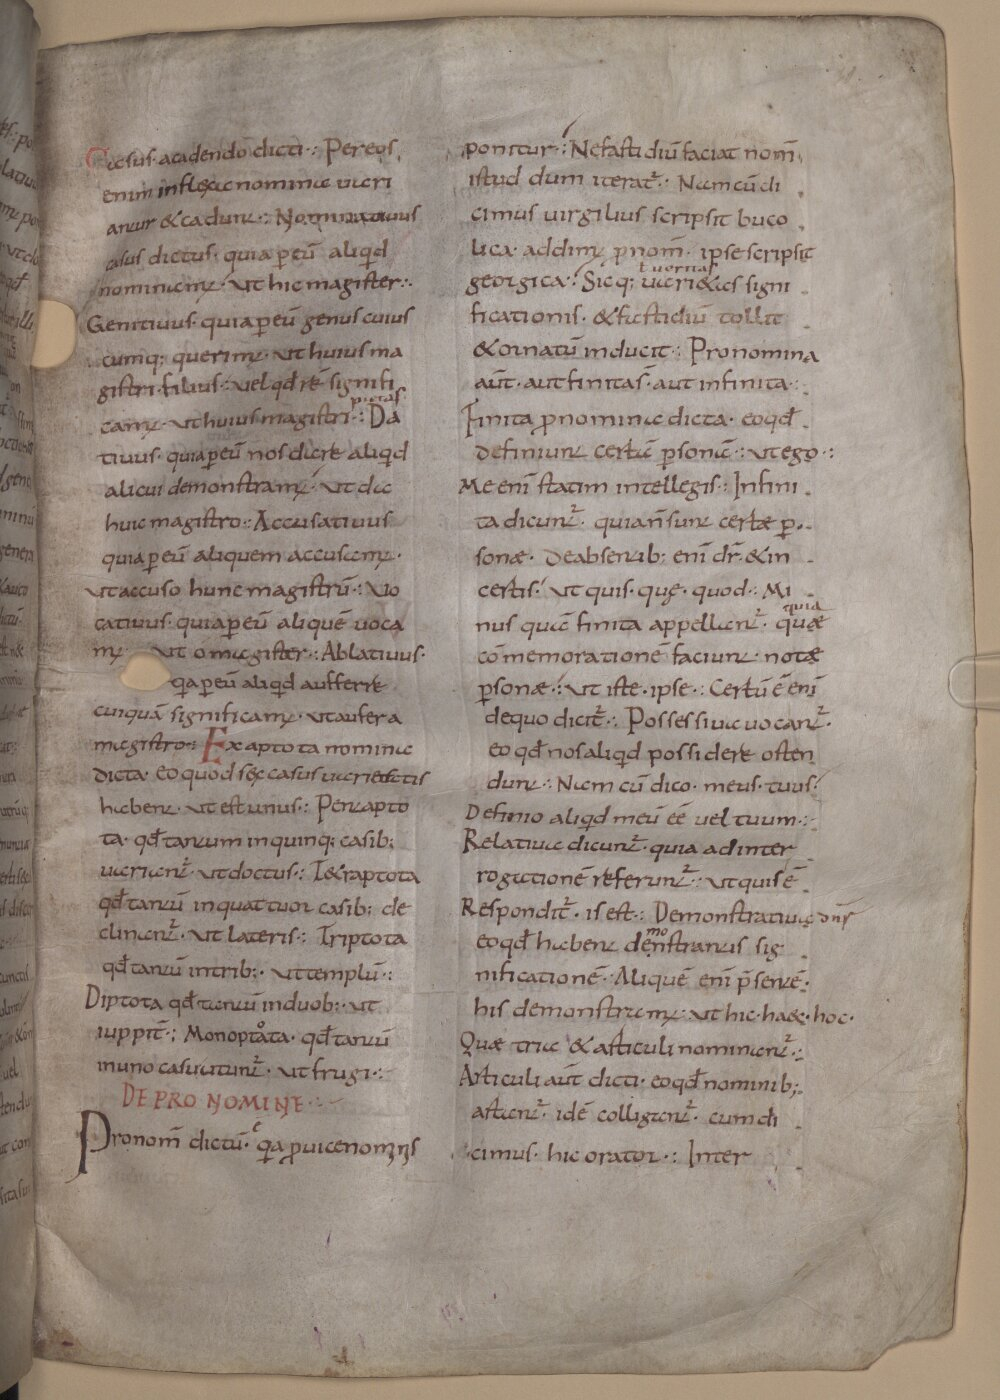 Casus. acadendo dicti·: Pereos
enim inflexae nomina uari
antur & cadunt·: Nominatiuus
casus dictus· quia p̲ eū aliqd
nominam̅· ut hic magister·:
Genitiuus· quia p̲ eū genus cuius
cumq; querim̅· ut huius ma
gistri filius·: uel qđ rē signifi
cam̅· ut huius magistri·: Da
tiuus· quia p̲ eū nos dare aliqđ
alicui demonstram̅· ut da
huic magistro·: Accusatiuus
quia p̲ eū aliquem accusam̅·
ut accuso hunc magistrū·: Uo
catiuus· quia p̲ eū aliquē uoca
m̅· ut o magister·: Ablatiuus·
qa p̲ eū aliqđ aufferre
cuiquā significam̅· ut aufer a
magistro·: Exaptota nomina
dicta· eo quod sex casus
habent· ut est unus·: Pentapto
ta· qđ tantum inquinq; casib;
uariant̅· ut doctus·: T&raptota
qđ tantū inquattuor casib; de
clinant̅· ut lateris·: Triptota
qđ tantū intrib;· ut templū·:
Diptota qđ tantū induob;· ut
iuppit̅·: Monoptota· qđ tantū
inuno casu utunt̅· ut frugi·:
DE PRONOMINE·:
Pronom̅ dictū· qa p̲ uice nominis
ponitur·: Nefastidiū faciat nom̅
istud dum iterat̅·: Nam cū di
cimus uirgilius scripsit buco
lica· addim̅ p̲nom̅· ipse scripsit
georgica·: Sicq; uari&as signi
ficationis· & fastidiū tollit
& ornatū inducit·: Pronomina
aūt· aut finita s̅· aut infinita·:
Finita p̲nomina dicta· eo qđ
definiunt certā p̲sonā·: ut ego·:
Me enī statim intellegis·: Infini
ta dicunt̅· quia n̅ sunt certae p̲
sonae· de absentib; enī dr̅· & in
certis· ut quis· quę· quod·: Mi
quia
nus quā finita appellant̅· quae
cōmemorationē faciunt· notae
p̲sonae·: ut iste· ipse·: Certū ē enī
dequo dicit̅·: Possessiua uocant̅·
eo qđ nos aliqđ possidere osten
dunt·: Nam cū dico· meus· tuus·
Definio aliqđ meū ēē uel tuum·:
Relatiua dicunt̅· quia ad inter
rogationē referunt̅·: ut quis ē
Respondit̅· is est·: Demonstratiua
mo
eo qđ habent denstrantis sig
nificationē· Aliquē enī p̄sentē·
his demonstram̅· ut hic· haec· hoc·
Quae tria & articuli nominant̅·:
Articuli aūt dicti· eo qđ nominib;
artant̅· idē colligant̅· cum di
cimus· hic orator·: Inter